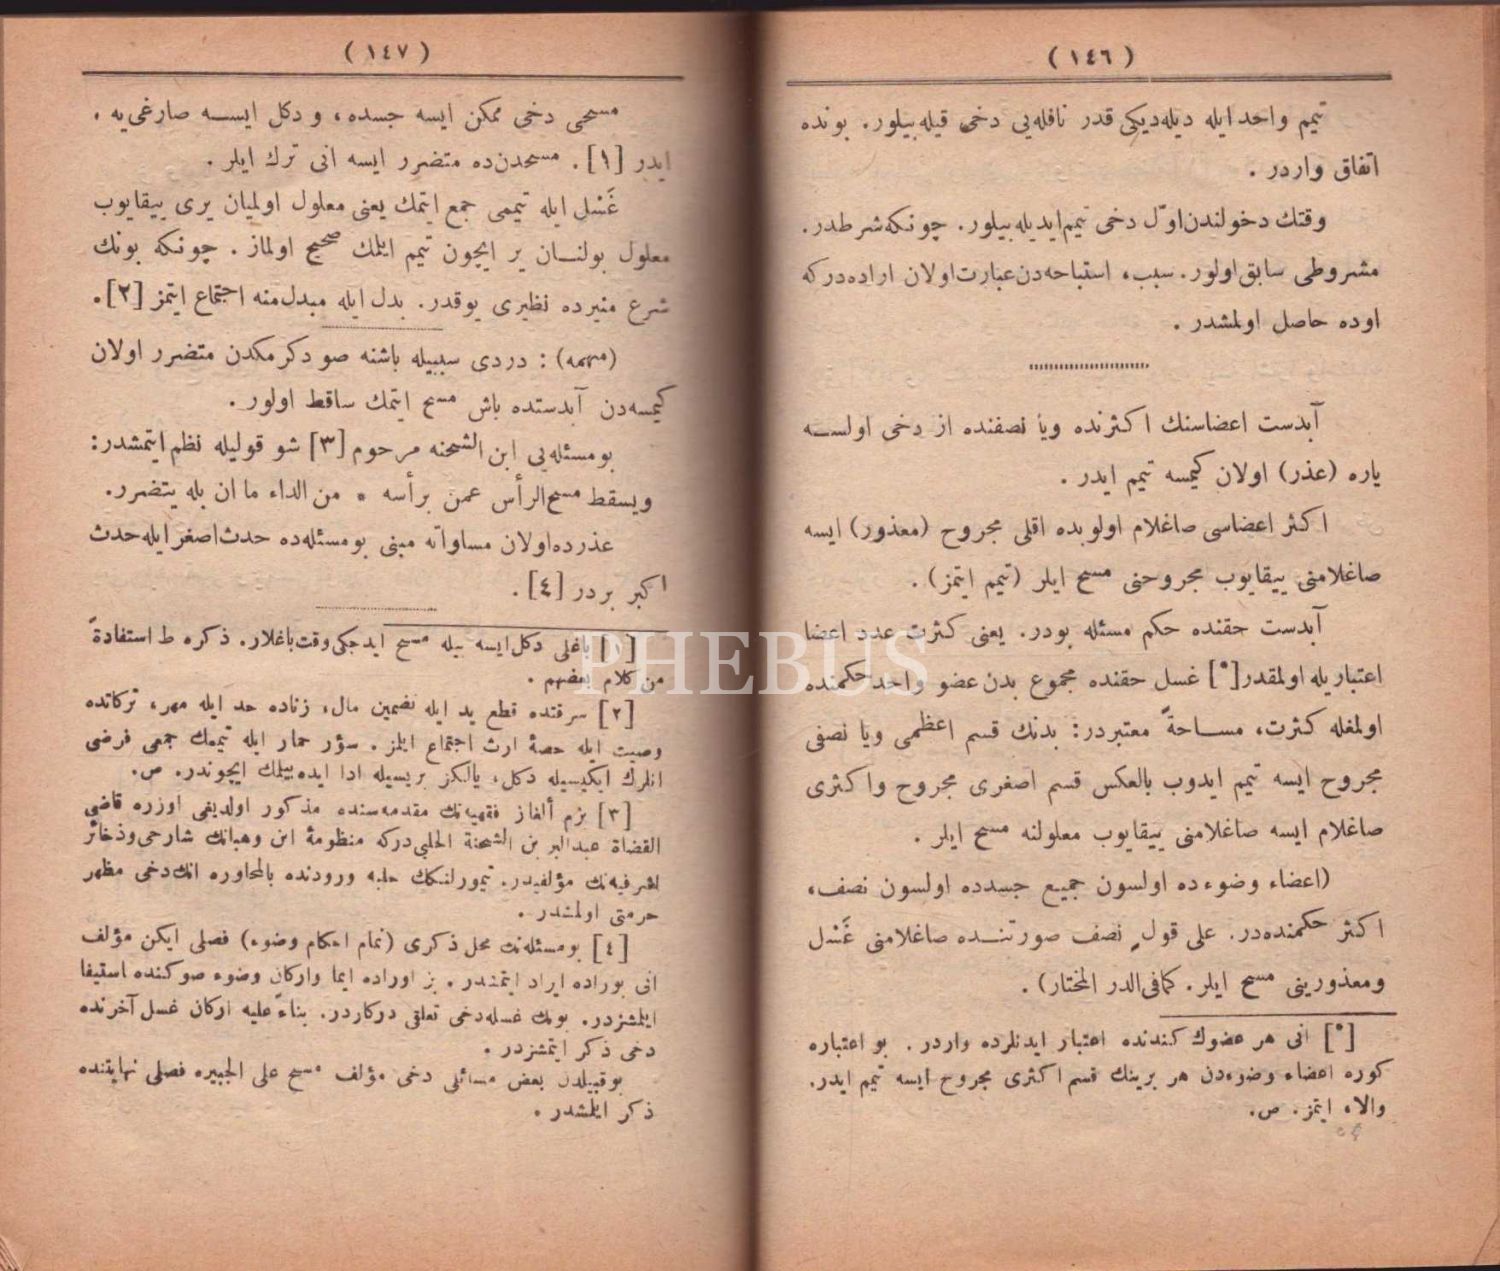 ( ١٤٦ )
تیمم واحد ایله دیله‌دیكی قدر نافله‌یی دخی قیله‌بیلور. بونده
اتفاق واردر .
وقتك دخولندن اوّل دخی تیمم ایدیله‌بیلور. چونكه شرطدر.
مشروطی سابق اولور. سبب، استباحه‌دن عبارت اولان اراده‌دركه
اوده حاصل اولمشدر .
آبدست اعضاسنك اكثرنده ویا نصفنده از دخی اولســه
یاره (عذر) اولان كیمسه تیمم ایدر .
اكثر اعضاسی صاغلام اولوبده اقلی مجروح (معذور) ایسه
صاغلامنی ییقایوب مجروحنی مسح ایلر (تیمم ایتمز) .
آبدست حقنده حكم مسئله بودر. یعنی كثرت عدد اعضا
اعتباریله اولمقدر[*] غسل حقنده مجموع بدن عضو واحد حكمنده
اولمغله كثرت، مســاحةً معتبردر: بدنك قسم اعظمی ویا نصفی
مجروح ایسه تیمم ایدوب بالعكس قسم اصغری مجروح واكثری
صاغلام ایسه صاغلامنی ییقایوب معلولنه مسح ایلر .
(اعضاء وضوءده اولسون جمیع جسدده اولسون نصف،
اكثر حكمنده‌در. علی قولٍ نصف صورتنــده صاغلامنی غَسْل
ومعذورینی مسح ایلر. كمافی الدر المختار) .
[*] انی هر عضوك كندنده اعتبار ایدنلرده واردر . بو اعتباره
كوره اعضاء وضوءدن هر برینك قسم اكثری مجروح ایسه تیمم ایدر.
والاء ایتمز. ص.
( ١٤٧ )
مسحی دخی ممكن ایسه جسده، ودكل ایســه صارغی‌یه .
ایدر [١] . مسحدن‌ده متضرر ایسه انی ترك ایلر .
غَسْل ایله تیممی جمع ایتمك یعنی معلول اولمیان یری ییقایوب
معلول بولنــان یر ایچون تیمم ایلمك صحیح اولماز . چونكه بونك
شرع منیرده نظیری یوقدر. بدل ایله مبدل‌منه اجتماع ایتمز [٢].
(مهمه) : دردی سببیله باشنه صو دكرمكدن متضرر اولان
كیمسه‌دن آبدستده باش مسح ایتمك ساقط اولور .
بومسئله‌یی ابن الشحنه مرحوم [٣] شو قولیله نظم ایتمشدر:
ویسقط مسح الرأس عمن برأسه * من الداء ما ان بله یتضرر.
عذرده‌اولان مساواته مبنی بومسئله‌ده حدث اصغرایله حدث
اكبر بردر [٤] .
[١] باغلی دكل ایسه بیله مسح ایدجكی وقت باغلار. ذكره ط استفادةً
من كلام بعضهم .
[٢] سرقتده قطع ید ایله تضمین مال، زناده حد ایله مهر، تركاتده
وصیت ایله حصهٔ ارث اجتماع ایلمز . سؤر حمار ایله تیممك جمعی فرضی
انلرك ایكیسیله دكل، یالكز بریسیله ادا ایده‌بیلمك ایچوندر. ص.
[٣] بزم ألغاز فقهیه‌نك مقدمه‌سنده مذكور اولدیغی اوزره قاضی
القضاة عبدالبر بن الشحنة الحلبی‌دركه منظومهٔ ابن وهبانك شارحی وذخائر
اشرفیه‌نك مؤلفیدر. تیمورلنكك حلبه ورودنده بالمحاوره انك دخی مظهر
حرمتی اولمشدر .
[٤] بومسئله‌نك محل ذكری (تمام احكام وضوء) فصلی ایكن مؤلف
انی بوراده ایراد ایتمشدر . بز اوراده ایما واركان وضوء صوكنده استیفا
ایلمشزدر. بونك غسله‌دخی تعلقی دركاردر. بناءً علیه اركان غسل آخرنده
دخی ذكر ایتمشزدر .
بوقبیلدن بعض مسائلی دخی مؤلف مسح علی الجبیره فصلی نهایتنده
ذكر ایلمشدر .
PHEBUS